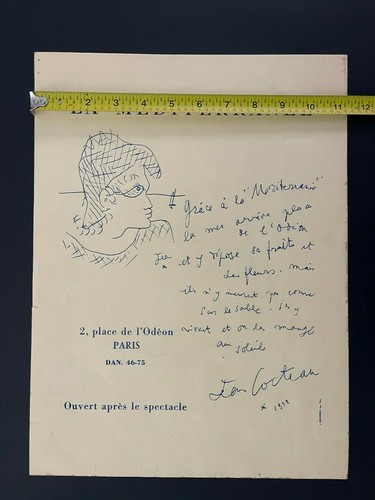 1 2 3 4 5 6 7 8 9 10 11 12
LA MÉDITERRANÉE
Grâce à la "Méditerranée"
la mer arrive place
de l'Odéon
et y dépose des fruits et
des fleurs. mais
ils n'y meurent pas comme
sur le sable. Ils y
vivent et on les mange
au soleil
Jean Cocteau
* 19
2, place de l'Odéon
PARIS
DAN. 46-75
Ouvert après le spectacle